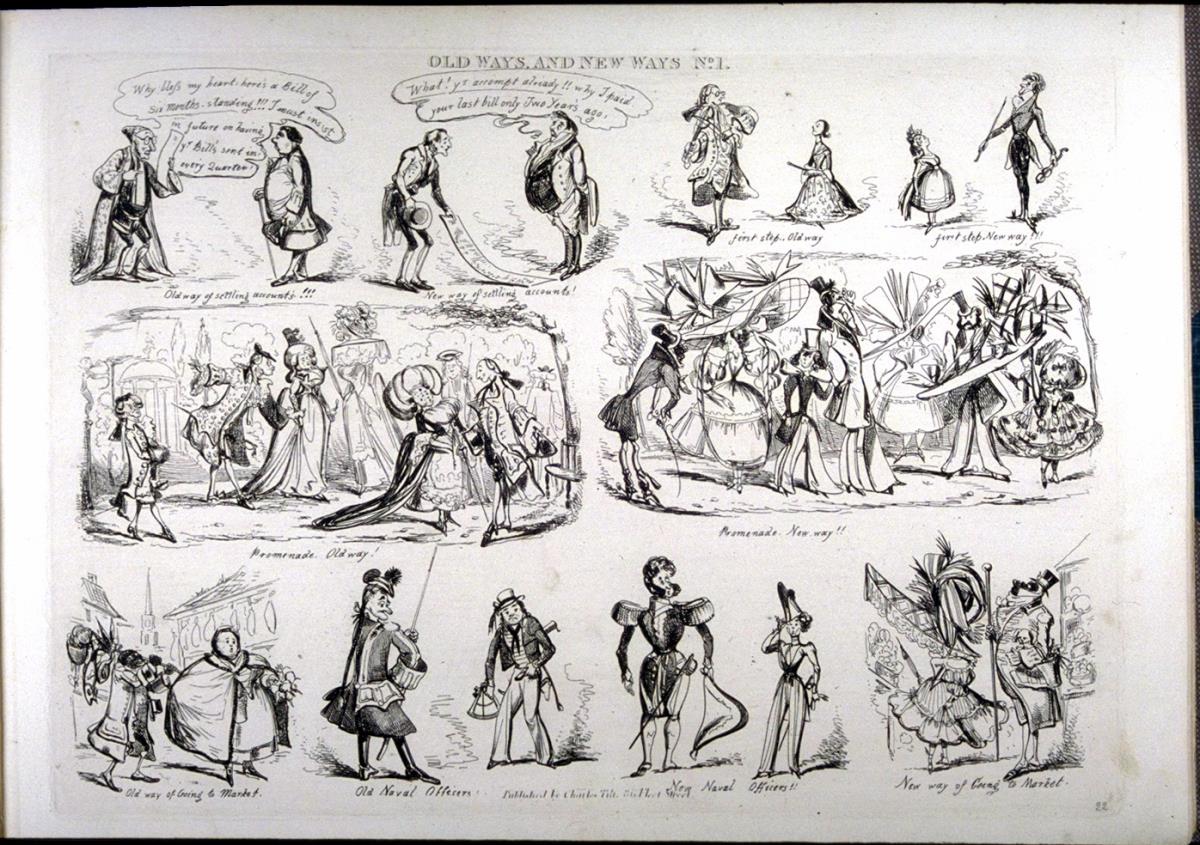 OLD WAYS, AND NEW WAYS Nº1.
Why bless my heart. here's a Bill of
Six Months. standing!!! I must insist
in future on having
yr Bills sent in
every Quarter!
What! yr accompt already!! why I paid
your last bill only Two Year's ago,
Old way of settling accounts!!!
New way of settling accounts!
first step. Old way
first step. New way!!!
Promenade. Old way!
Promenade. New. way!!
Old way of Going to Market.
Old Naval Officers!
New Naval Officers!!
New way of Going to Market.
Published by Charles Tilt, Fleet Street.
22